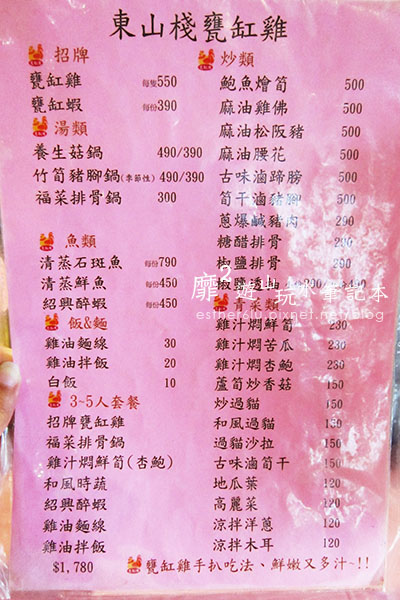 東山棧甕缸雞
招牌
甕缸雞 每隻550
甕缸蝦 每份390
湯類
養生菇鍋 490/390
竹筍豬腳鍋(季節性) 490/390
福菜排骨鍋 300
魚類
清蒸石斑魚 每份790
清蒸鮮魚 每份450
紹興醉蝦 每份450
飯&麵
雞油麵線 30
雞油拌飯 20
白飯 10
3~5人套餐
招牌甕缸雞
福菜排骨鍋
雞汁燜鮮筍(杏鮑)
和風時蔬
紹興醉蝦
雞油麵線
雞油拌飯
$1,780
炒類
鮑魚燴筍 500
麻油雞佛 500
麻油松阪豬 500
麻油腰花 500
古味滷蹄膀 500
筍干滷豬腳 500
蔥爆鹹豬肉 290
糖醋排骨 290
椒鹽排骨 290
青菜類
雞汁燜鮮筍 230
雞汁燜苦瓜 230
雞汁燜杏鮑 230
蘆筍炒香菇 150
炒過貓 150
和風過貓 150
過貓沙拉 150
古味滷筍干 150
地瓜葉 120
高麗菜 120
涼拌洋蔥 120
涼拌木耳 120
甕缸雞手扒吃法、鮮嫩又多汁~!!
靡2遊山玩水筆記本
esther6lu.pixnet.net/blog